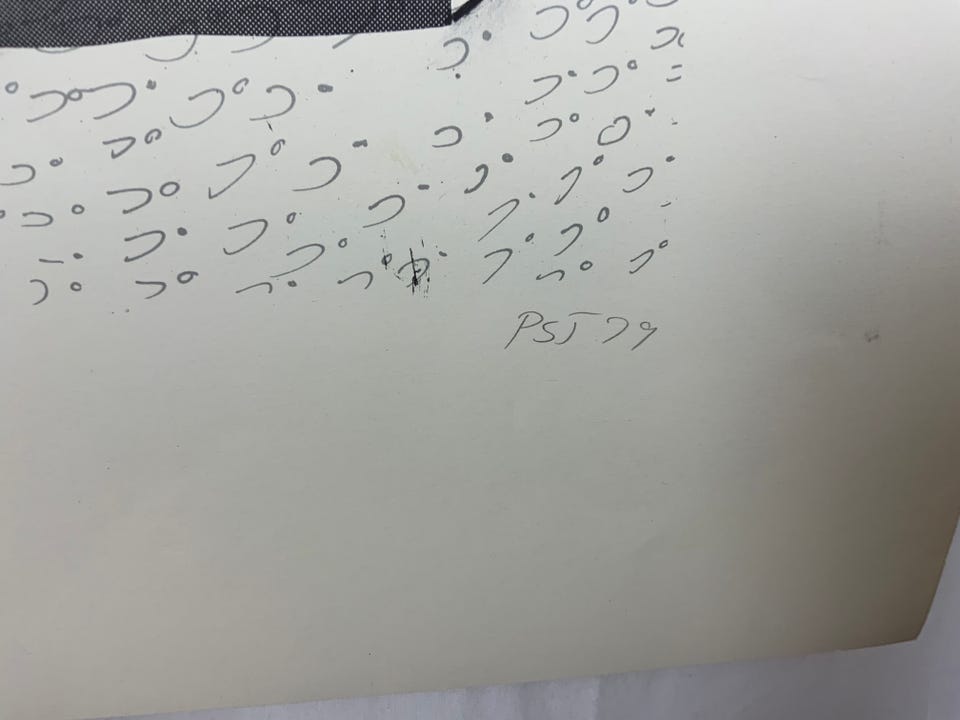 PSJ 79